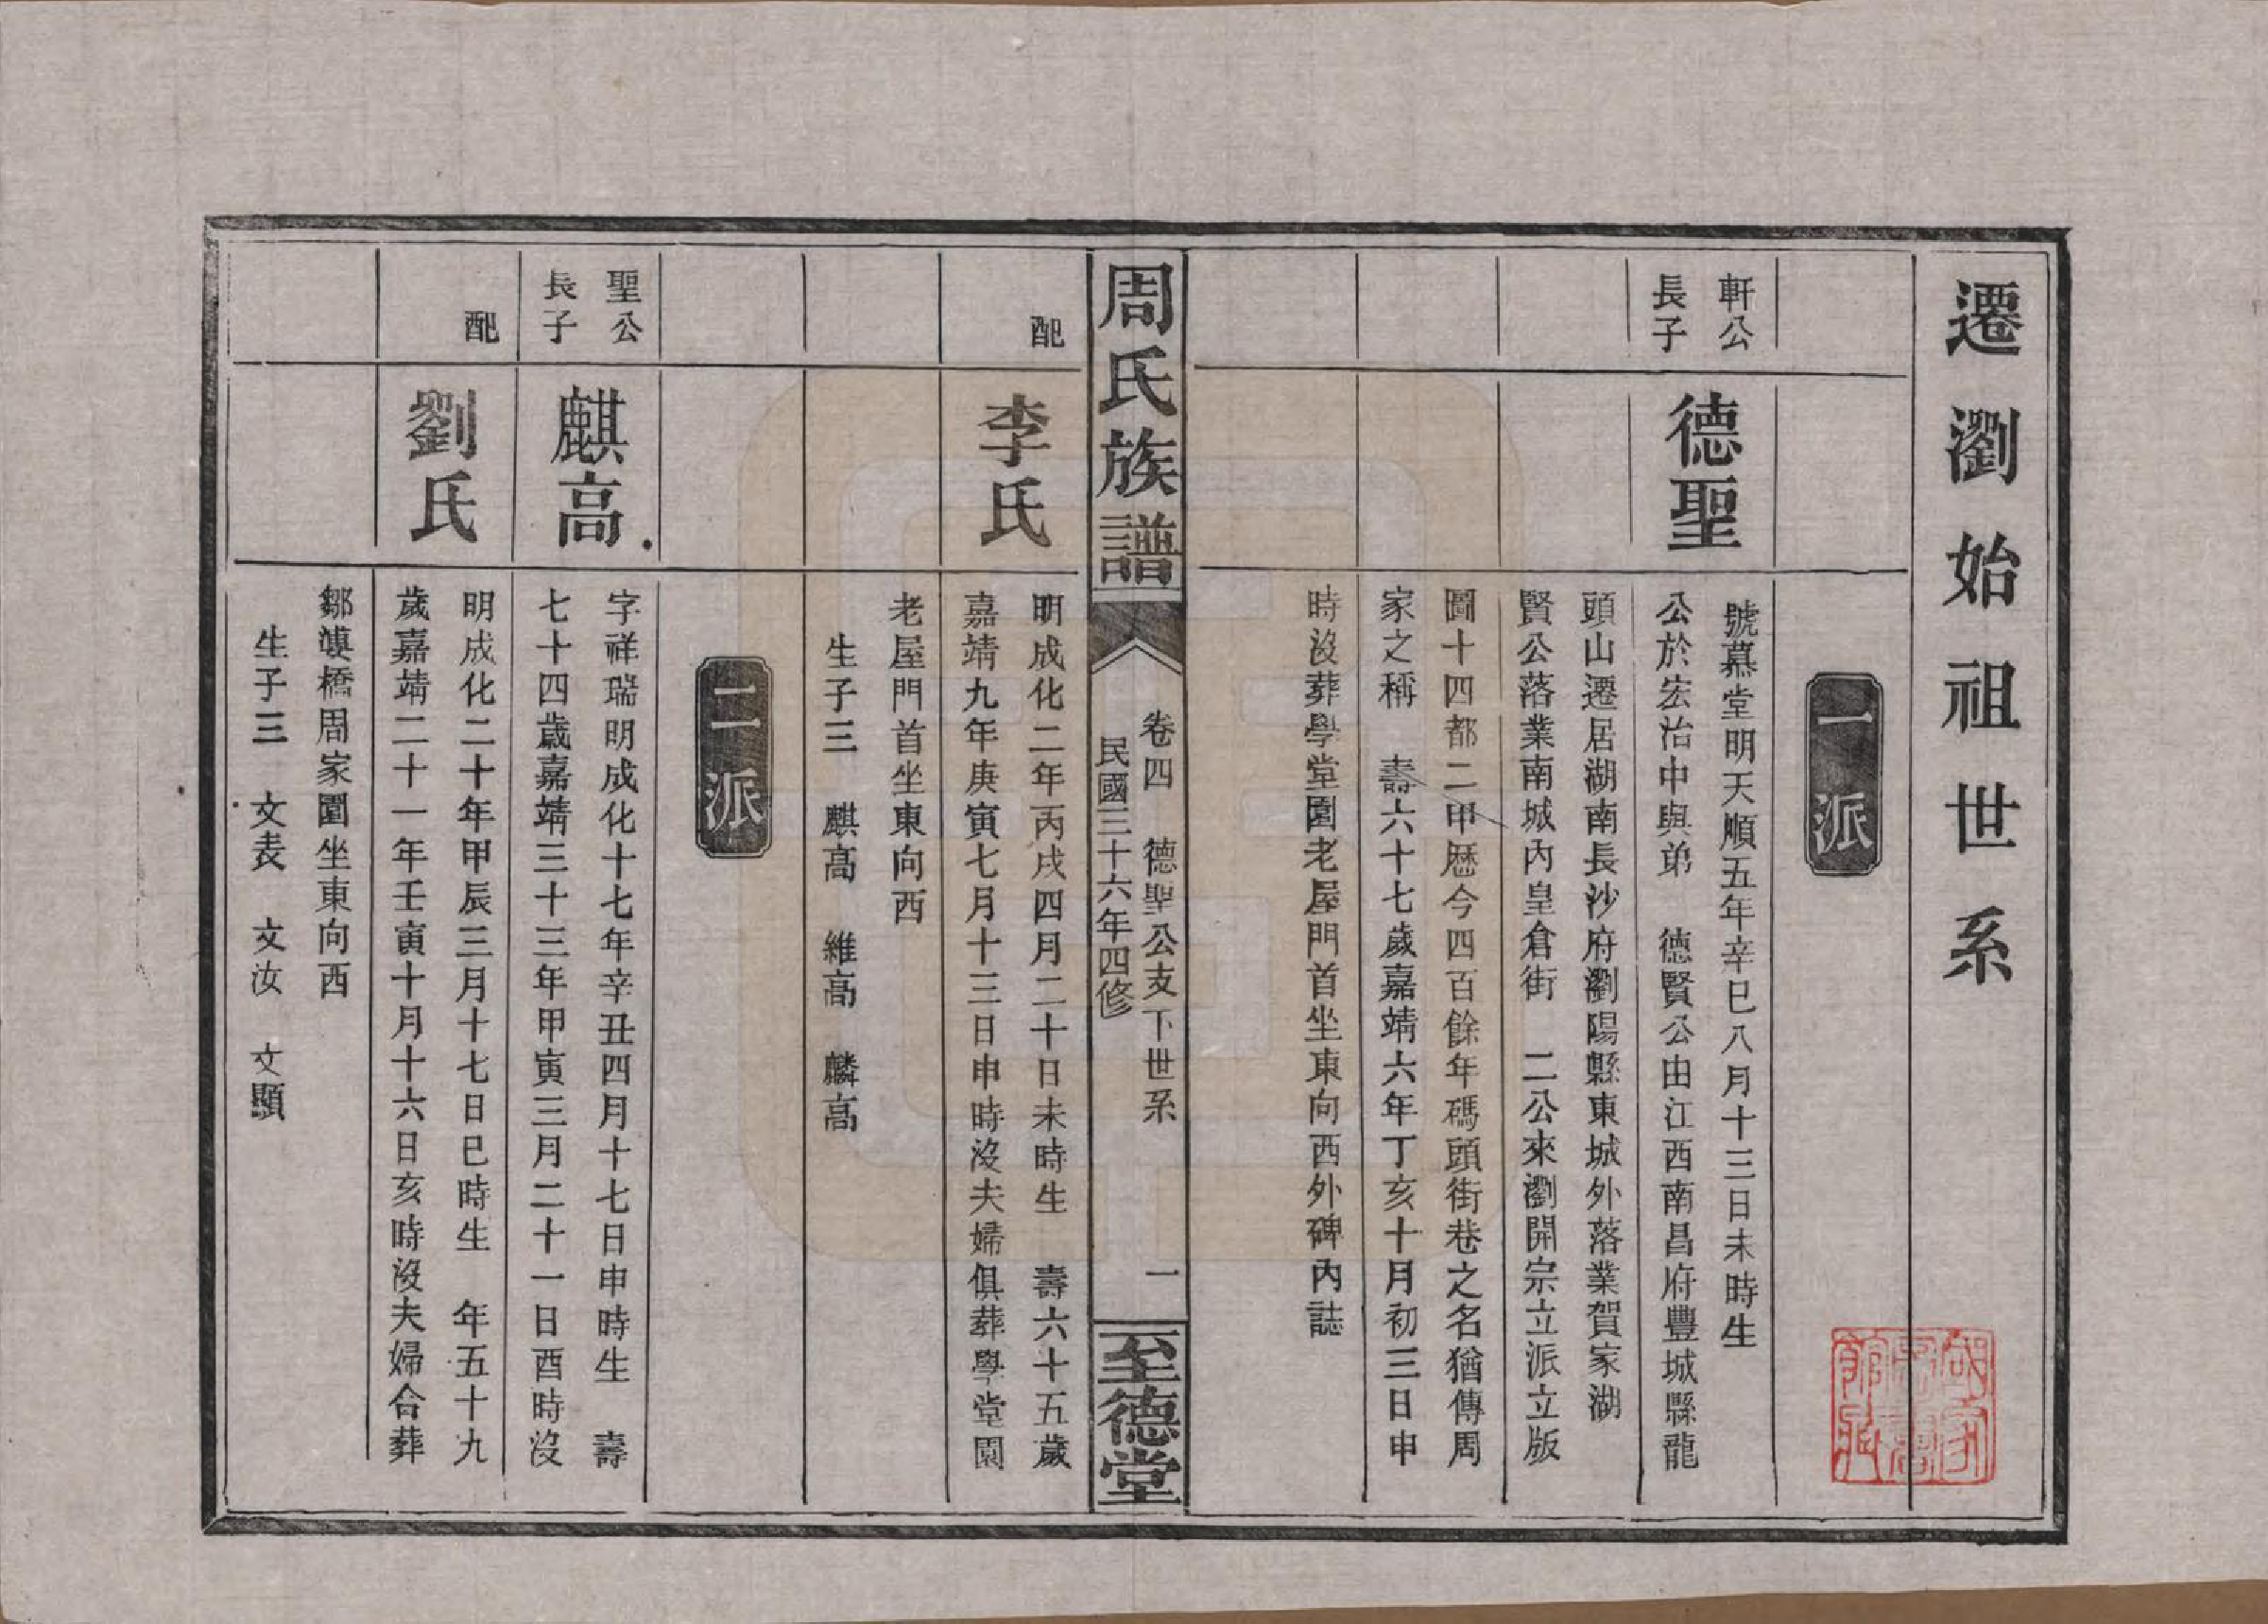 遷瀏始祖世系
一派
軒公
長子
德聖
號慕堂明天順五年辛巳八月十三日未時生
公於宏治中與弟　德賢公由江西南昌府豐城縣龍
頭山遷居湖南長沙府瀏陽縣東城外落業賀家湖
賢公落業南城內皇倉街　二公來瀏開宗立派立版
圖十四都二甲歷今四百餘年碼頭街巷之名猶傳周
家之稱　壽六十七歲嘉靖六年丁亥十月初三日申
時沒葬學堂園老屋門首坐東向西外碑內誌
周氏族譜
卷四　德聖公支下世系　一
民國三十六年四修
至德堂
配
李氏
明成化二年丙戌四月二十日未時生　壽六十五歲
嘉靖九年庚寅七月十三日申時沒夫婦俱葬學堂園
老屋門首坐東向西
生子三　麒高　維高　麟高
二派
聖公
長子
麒高
字祥瑞明成化十七年辛丑四月十七日申時生　壽
七十四歲嘉靖三十三年甲寅三月二十一日酉時沒
配
劉氏
明成化二十年甲辰三月十七日巳時生　年五十九
歲嘉靖二十一年壬寅十月十六日亥時沒夫婦合葬
鄒橋周家園坐東向西
生子三　文表　文汝　文顯